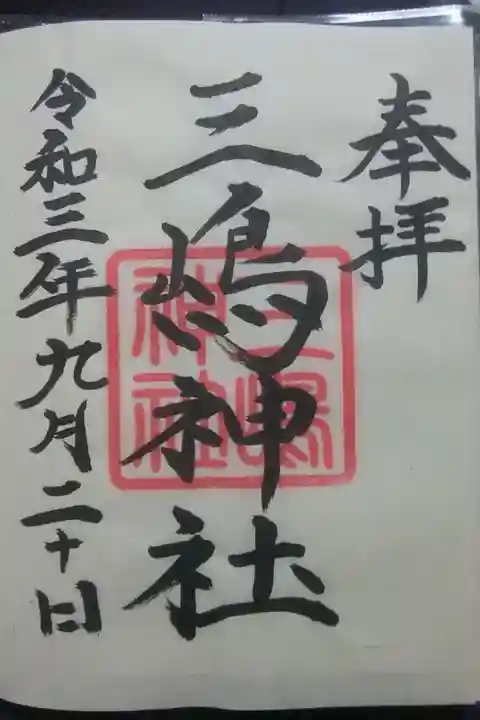 奉拝
三嶋神社
三嶋神社
令和三年九月二十日